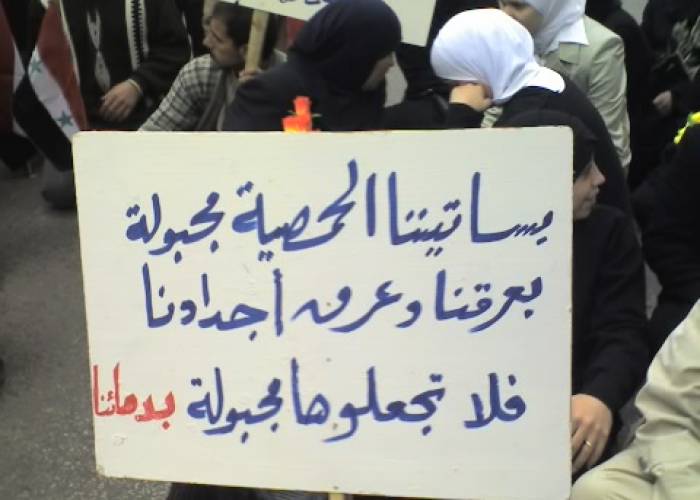 بساتيننا الحمصية مجبولة
بعرقنا وعرق أجدادنا
فلا تجعلوها مجبولة بدمائنا